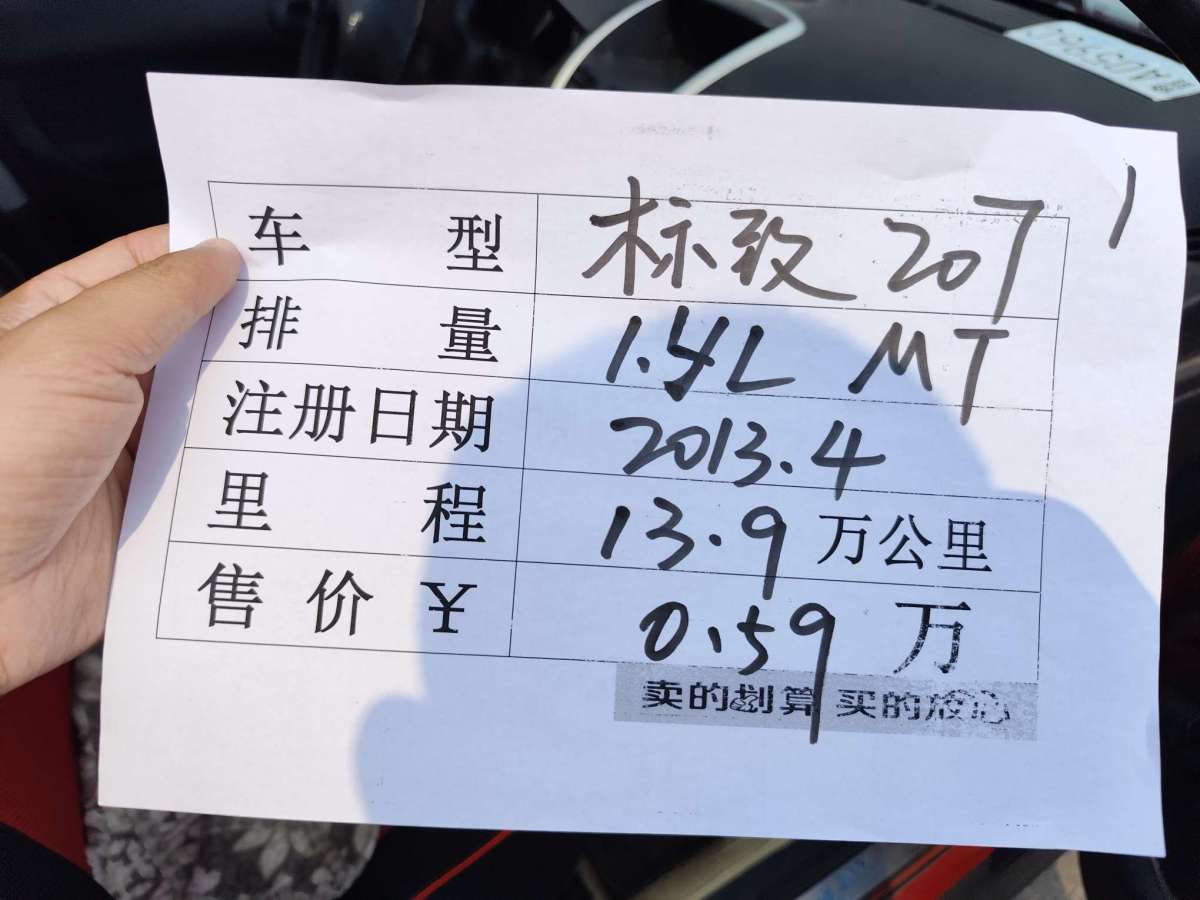 车型 标致 207
排量 1.4L MT
注册日期 2013.4
里程 13.9 万公里
售价¥ 0.59 万
卖的划算 买的放心